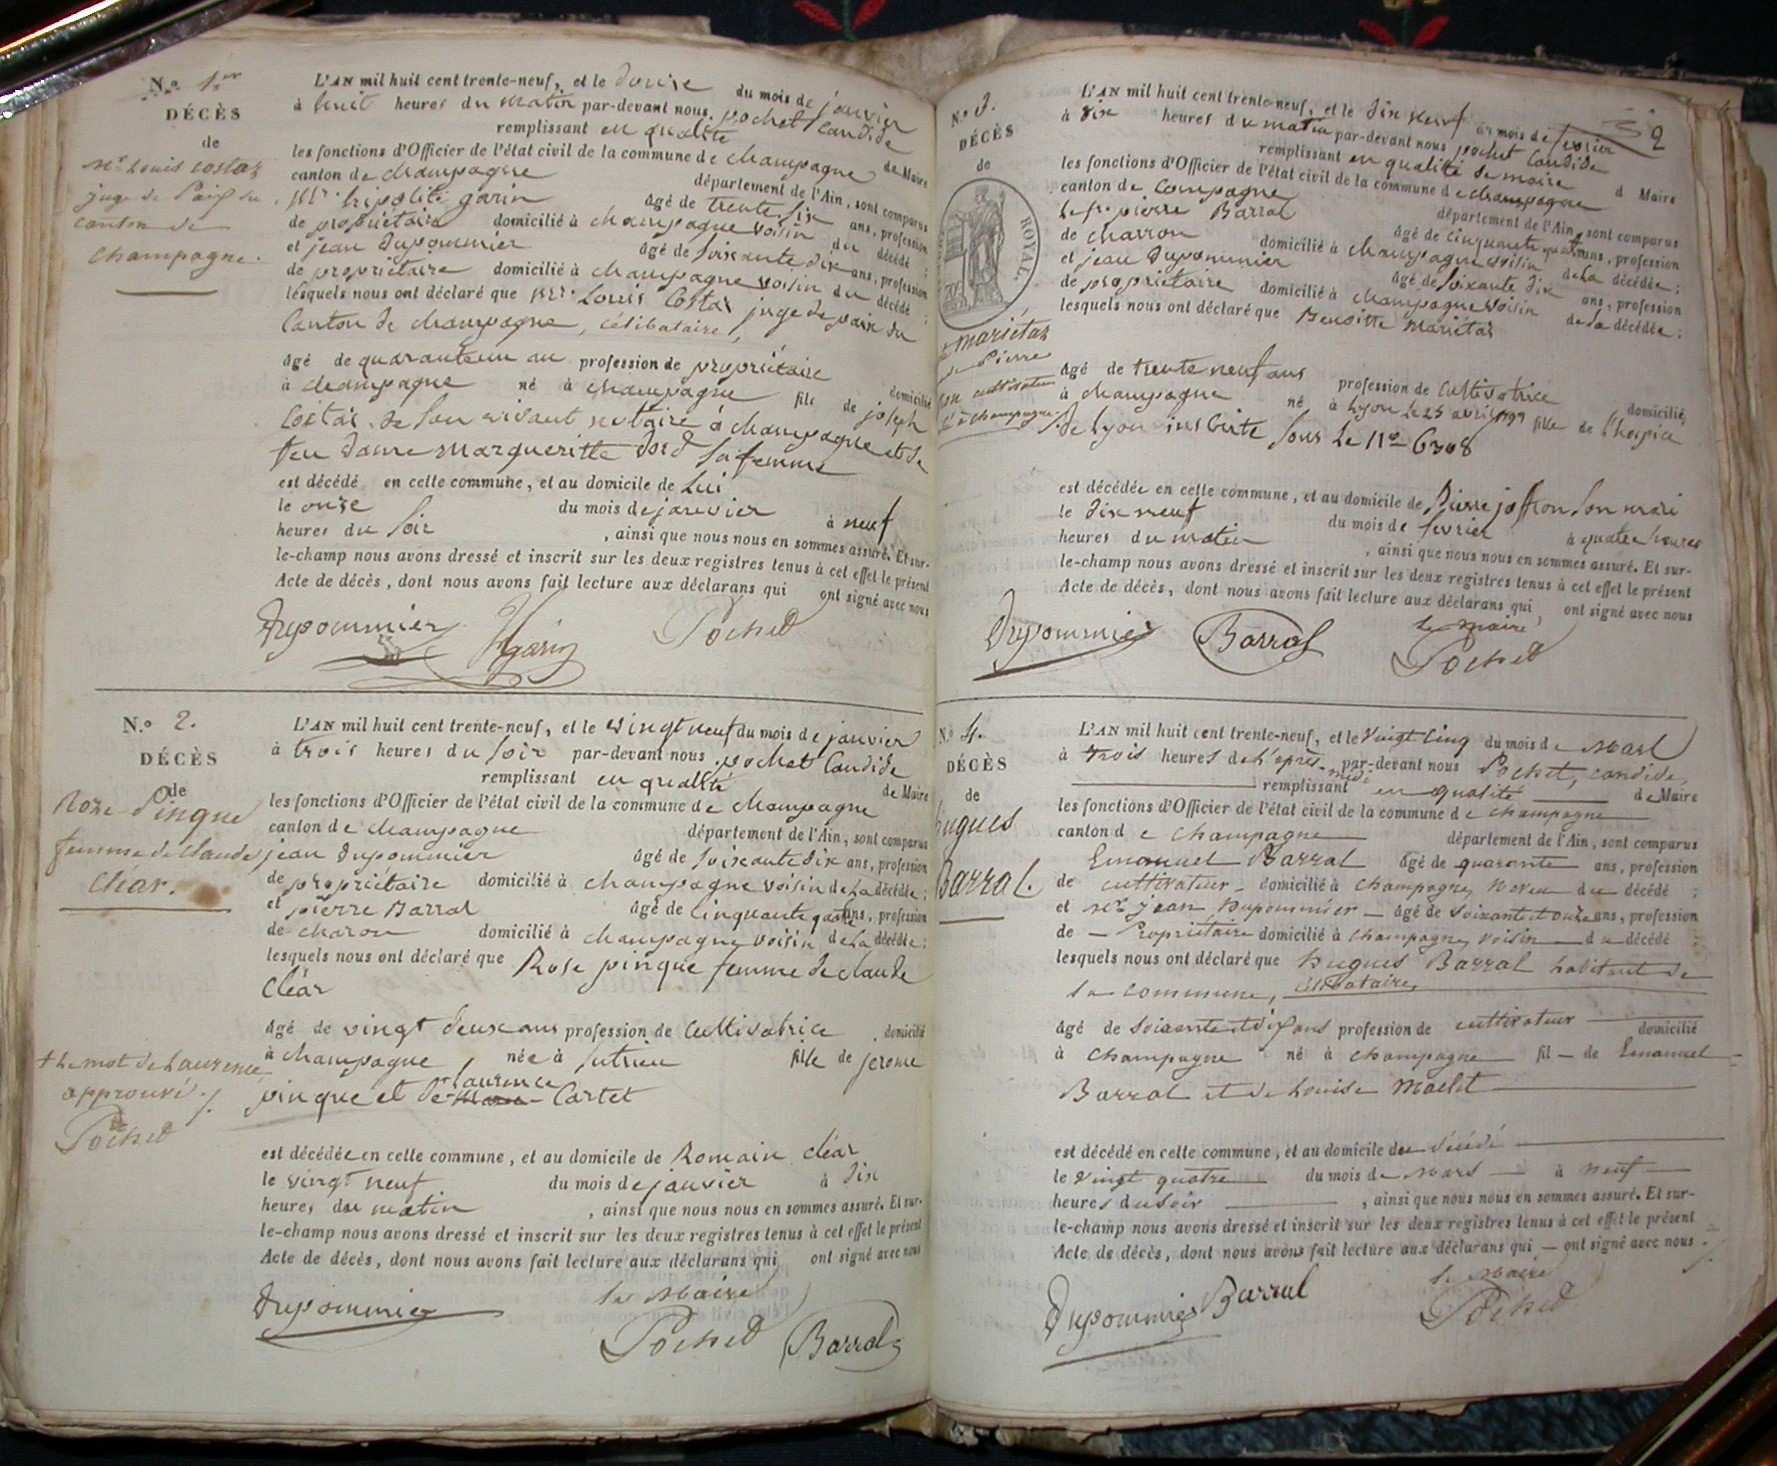 N.º 1.er
DÉCÈS
de
Mr. Louis Costaz
juge de Paix du
canton de
Champagne.
L'AN mil huit cent trente-neuf, et le douze du mois de janvier
à huit heures du matin par-devant nous, pochet Candide
remplissant en qualité de Maire
les fonctions d'Officier de l'état civil de la commune de champagne
canton de champagne département de l'Ain, sont comparus
Mr. hipolite garin âgé de trente six ans, profession
de propriétaire domicilié à champagne voisin du décédé ;
et jean dupommier âgé de soixante dix ans, profession
de propriétaire domicilié à champagne voisin du décédé ;
lesquels nous ont déclaré que Mr. Louis Costaz juge de paix du
Canton de champagne, célibataire,
âgé de quarante un an profession de propriétaire domicilié
à champagne né à champagne fils de joseph
Costaz de son vivant notaire à champagne et de
feu dame margueritte sa femme
est décédé en cette commune, et au domicile de Lui
le onze du mois de janvier à neuf
heures du soir , ainsi que nous nous en sommes assuré. Et sur-
le-champ nous avons dressé et inscrit sur les deux registres tenus à cet effet le présent
Acte de décès, dont nous avons fait lecture aux déclarans qui ont signé avec nous
Dupommier Hgarin Pochet
N.º 2.
DÉCÈS
de
Rose Pinque
femme de Claude
Cléar.
L'AN mil huit cent trente-neuf, et le vingt neuf du mois de janvier
à trois heures du soir par-devant nous pochet Candide
remplissant en qualité de Maire
les fonctions d'Officier de l'état civil de la commune de champagne
canton de champagne département de l'Ain, sont comparus
jean dupommier âgé de soixante dix ans, profession
de propriétaire domicilié à champagne voisin de la décédée ;
et pierre Barral âgé de cinquante quatre ans, profession
de charon domicilié à champagne voisin de la décédée ;
lesquels nous ont déclaré que Rose pinque femme de claude
cléar
âgé de vingt deux ans profession de cultivatrice domicilié
à champagne née à sutrieu fille de jerome
pinque et de laurence Cartet
+ le mot de Laurence
approuvé ./.
Pochet
est décédée en cette commune, et au domicile de Romain cléar
le vingt neuf du mois de janvier à dix
heures du matin , ainsi que nous nous en sommes assuré. Et sur-
le-champ nous avons dressé et inscrit sur les deux registres tenus à cet effet le présent
Acte de décès, dont nous avons fait lecture aux déclarans qui ont signé avec nous
Dupommier le Maire
Pochet Barral
2
N.º 3.
DÉCÈS
de
ROYAL.
mariétaz
Pierre
son cultivateur
à champagne
L'AN mil huit cent trente-neuf, et le dix neuf du mois de fevrier
à dix heures du matin par-devant nous pochet Candide
remplissant en qualité de maire d Maire
les fonctions d'Officier de l'état civil de la commune de champagne
canton de Compagne département de l'Ain, sont comparus
le sr. pierre Barral âgé de cinquante quatre ans, profession
de charron domicilié à champagne voisin de la décédée ;
et jean dupommier âgé de soixante dix ans, profession
de propriétaire domicilié à champagne voisin de la décédée ;
lesquels nous ont déclaré que Benoitte Mariétaz
âgé de trente neuf ans profession de Cultivatrice domicilié
à champagne né à Lyon le 25 avril 1799 fille de l'hospice
de Lyon inscrite sous le No 6308
est décédée en cette commune, et au domicile de Pierre joffron son mari
le dix neuf du mois de fevrier à quatre heures
heures du matin , ainsi que nous nous en sommes assuré. Et sur-
le-champ nous avons dressé et inscrit sur les deux registres tenus à cet effet le présent
Acte de décès, dont nous avons fait lecture aux déclarans qui ont signé avec nous
Dupommier Barral le maire
Pochet
N.º 4.
DÉCÈS
de
hugues
Barral.
L'AN mil huit cent trente-neuf, et le vingt cinq du mois de Mars
à trois heures de l'après midi par-devant nous Pochet, candide,
remplissant en qualité de Maire
les fonctions d'Officier de l'état civil de la commune de champagne
canton de champagne département de l'Ain, sont comparus
Emanuel Barral âgé de quarante ans, profession
de cultivateur domicilié à champagne, neveu du décédé ;
et Mr. jean Dupommier âgé de soixante et onze ans, profession
de Propriétaire domicilié à champagne, voisin du décédé ;
lesquels nous ont déclaré que hugues Barral habitant de
la commune, célibataire,
âgé de soixante et dix ans profession de cultivateur domicilié
à champagne né à champagne fil de Emanuel
Barral et de Louise
est décédé en cette commune, et au domicile du décédé
le vingt quatre du mois de Mars à neuf
heures du soir , ainsi que nous nous en sommes assuré. Et sur-
le-champ nous avons dressé et inscrit sur les deux registres tenus à cet effet le présent
Acte de décès, dont nous avons fait lecture aux déclarans qui ont signé avec nous ./.
Dupommier Barral le Maire
Pochet